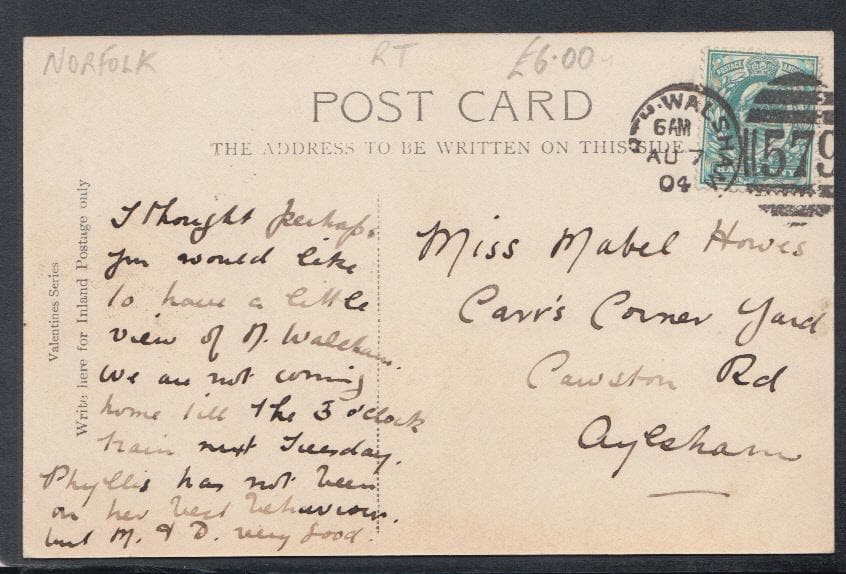 NORFOLK RT £6.00
POST CARD
THE ADDRESS TO BE WRITTEN ON THIS SIDE
POSTAGE
WALSHAM
6 AM
AU 7
04
579
Valentines Series
Write here for Inland Postage only
I thought perhaps
you would like
to have a little
view of N. Walsham.
We are not coming
home till the 3 o'clock
train next Tuesday.
Phyllis has not been
on her best behaviour.
but M. & D. very good.
Miss Mabel Howes
Carr's Corner Yard
Cawston Rd
Aylsham